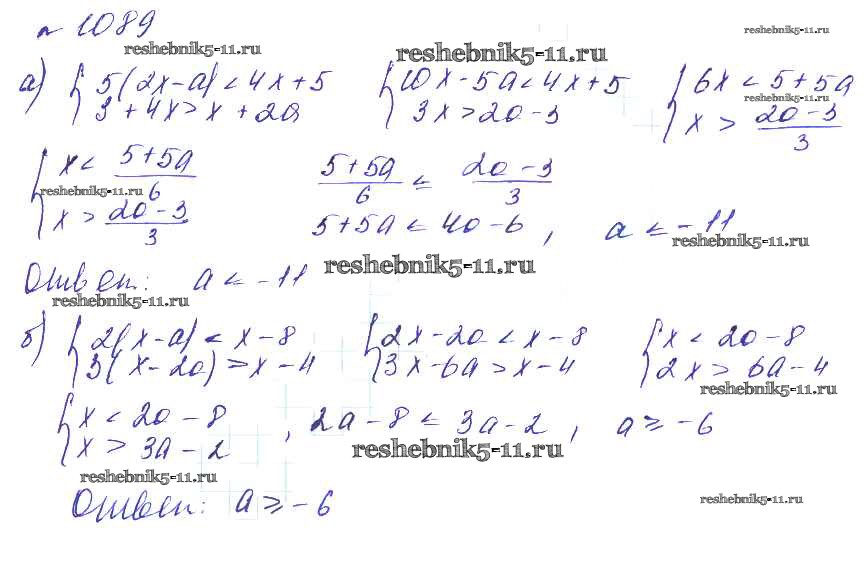 № 1089
reshebnik5-11.ru reshebnik5-11.ru reshebnik5-11.ru
а) { 5(2x-a) < 4x+5 { 10x-5a < 4x+5 { 6x < 5+5a
3+4x > x+2a 3x > 2a-3 x > (2a-3)/3
reshebnik5-11.ru
{ x < (5+5a)/6 (5+5a)/6 ≤ (2a-3)/3
reshebnik5-11.ru
x > (2a-3)/3 5+5a ≤ 4a-6, a ≤ -11
reshebnik5-11.ru
Ответ: a ≤ -11 reshebnik5-11.ru
reshebnik5-11.ru
б) { 2(x-a) < x-8 { 2x-2a < x-8 { x < 2a-8
3(x-2a) > x-4 3x-6a > x-4 2x > 6a-4
reshebnik5-11.ru
{ x < 2a-8 , 2a-8 ≤ 3a-2, a ≥ -6
x > 3a-2
reshebnik5-11.ru
reshebnik5-11.ru
Ответ: a ≥ -6 reshebnik5-11.ru